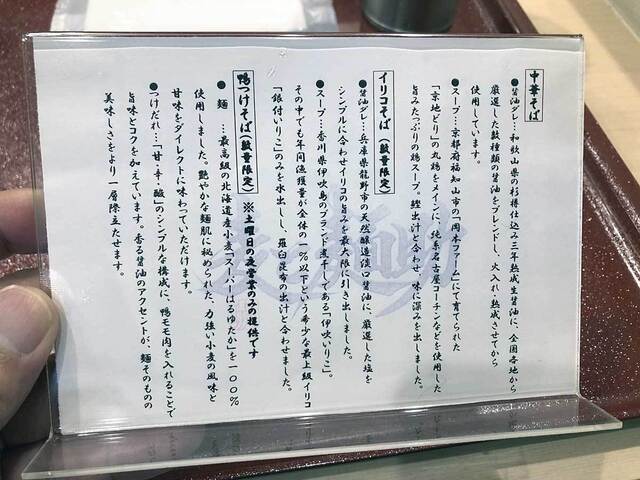 中華そば
●醤油ダレ…和歌山県の杉樽仕込み三年熟成生醤油に、全国各地から
厳選した数種類の醤油をブレンドし、火入れ・熟成させてから
使用しています。
●スープ…京都府福知山市の「岡本ファーム」にて育てられた
「京地どり」の丸鶏をメインに、純系名古屋コーチンなどを使用した
旨みたっぷりの鶏スープ。鰹出汁と合わせ、味に深みを出しました。
イリコそば（数量限定）
●醤油ダレ…兵庫県龍野市の天然醸造淡口醤油に、厳選した塩を
シンプルに合わせイリコの旨みを最大限に引き出しました。
●スープ…香川県伊吹島のブランド煮干しである「伊吹いりこ」。
その中でも年間漁獲量が全体の一％以下という希少な最上級イリコ
「銀付いりこ」のみを水出しし、羅臼昆布の出汁と合わせました。
鴨つけそば（数量限定）※土曜日の夜営業のみの提供です
●麺…最高級の北海道産小麦「スーパーはるゆたか」を一〇〇％
使用しました。艶やかな麺肌に秘められた、力強い小麦の風味と
甘味をダイレクトに味わっていただけます。
●つけだれ…「甘・辛・酸」のシンプルな構成に、鴨モモ肉を入れることで
旨味とコクを加えています。香る醤油のアクセントが、麺そのものの
美味しさをより一層際立たせます。